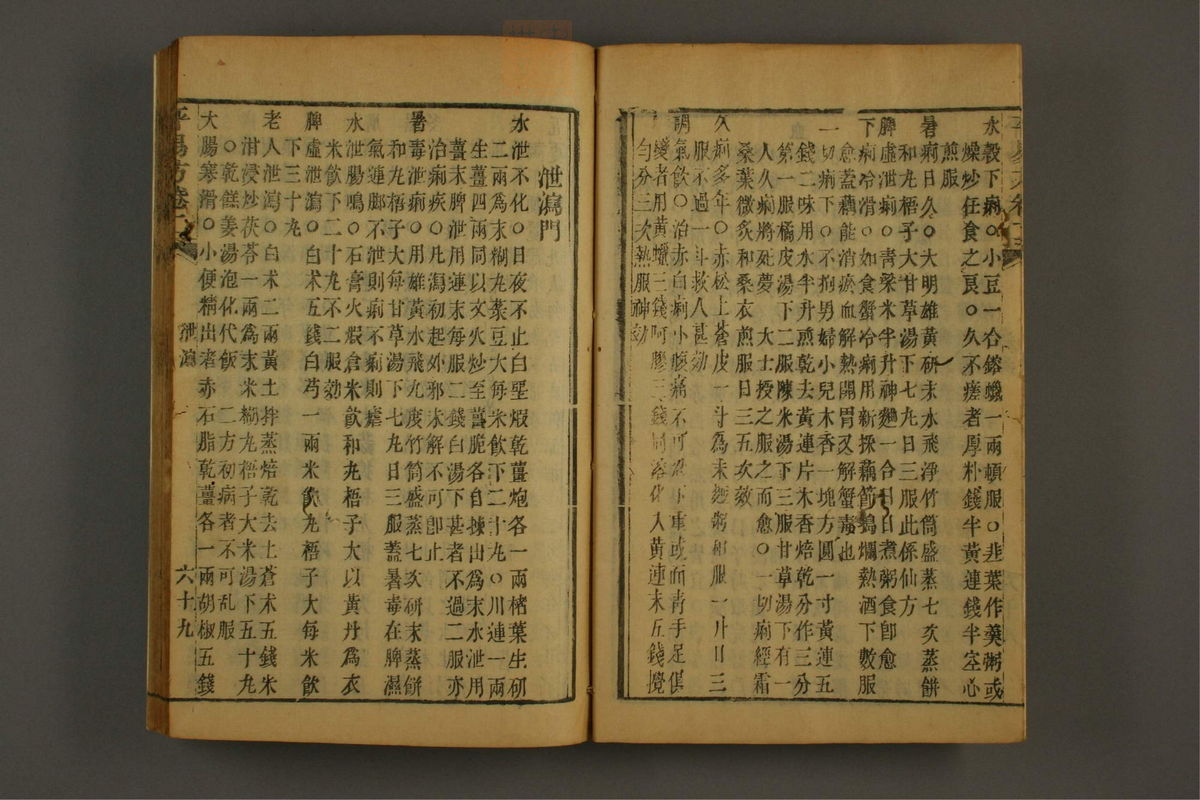 水穀下痢○小豆一合鎔蠟一兩頓服○韭葉作羹粥或
燥炒任食之良○久不瘥者厚朴錢半黃連錢半空心
煎服
暑痢日久○大明雄黃研末水飛淨竹筒盛蒸七次蒸餅
和丸梧子大甘草湯下七丸日三服此係仙方
脾虛泄痢○青粱米半升神麯一合日日煮粥食卽愈
下痢冷滑○如食蟹冷痢用新採藕節搗爛熱酒下數服
愈蓋藕能消瘀血解熱開胃又解蟹毒也
一切痢下○不拘男婦小兒木香一塊方圓一寸黃連五
錢二味用水半升煎乾去黃連片木香焙乾分作三分
第一服橘皮湯下二服陳米湯下三服甘草湯下有一
人久痢將死夢大士授之服之而愈○一切痢經霜
桑葉微炙和桑衣煎服日三五次效
久痢多年○赤松上蒼皮一斗爲末麵粥和服一升日三
服不過一斗救人甚効
調氣飲○治赤白痢小腹痛不可重或面青手足俱
變者用黃蠟三錢阿膠三錢同溶化入黃連末五錢攪
勻分三次熱服神効
泄瀉門
水泄不化○日夜不止白堊煆乾薑炮各一兩楮葉生研
二兩爲末糊丸菉豆大每米飲下二十丸○川連一兩
生薑四兩同以文火炒至薑脆各自揀出爲末水泄用
薑末脾泄用連末每服二錢白湯下甚者不過二服亦
治痢疾○凡瀉初起外邪未解不可卽止
暑毒泄痢○用雄黃水飛九度竹筒盛蒸七次研末蒸餅
和丸梧子大每甘草湯下七丸日三服蓋暑毒在脾濕
氣連脚不泄則痢不痢則瘧
水泄腸鳴○石膏火煆倉米飮和丸梧子大以黃丹爲衣
米飲下二十丸不二服効
脾虛泄瀉○白朮五錢白芍一兩米飲丸梧子大每米飲
下三十丸
老人泄瀉○白朮二兩黃土拌蒸焙乾去土蒼朮五錢米
泔浸炒茯苓一兩爲末米糊丸梧子大米湯下五十丸
○乾餻姜湯泡化代飯二方初病者不可乱服
大腸寒滑○小便精出者赤石脂乾薑各一兩胡椒五錢
平易方卷二
泄瀉
六十九